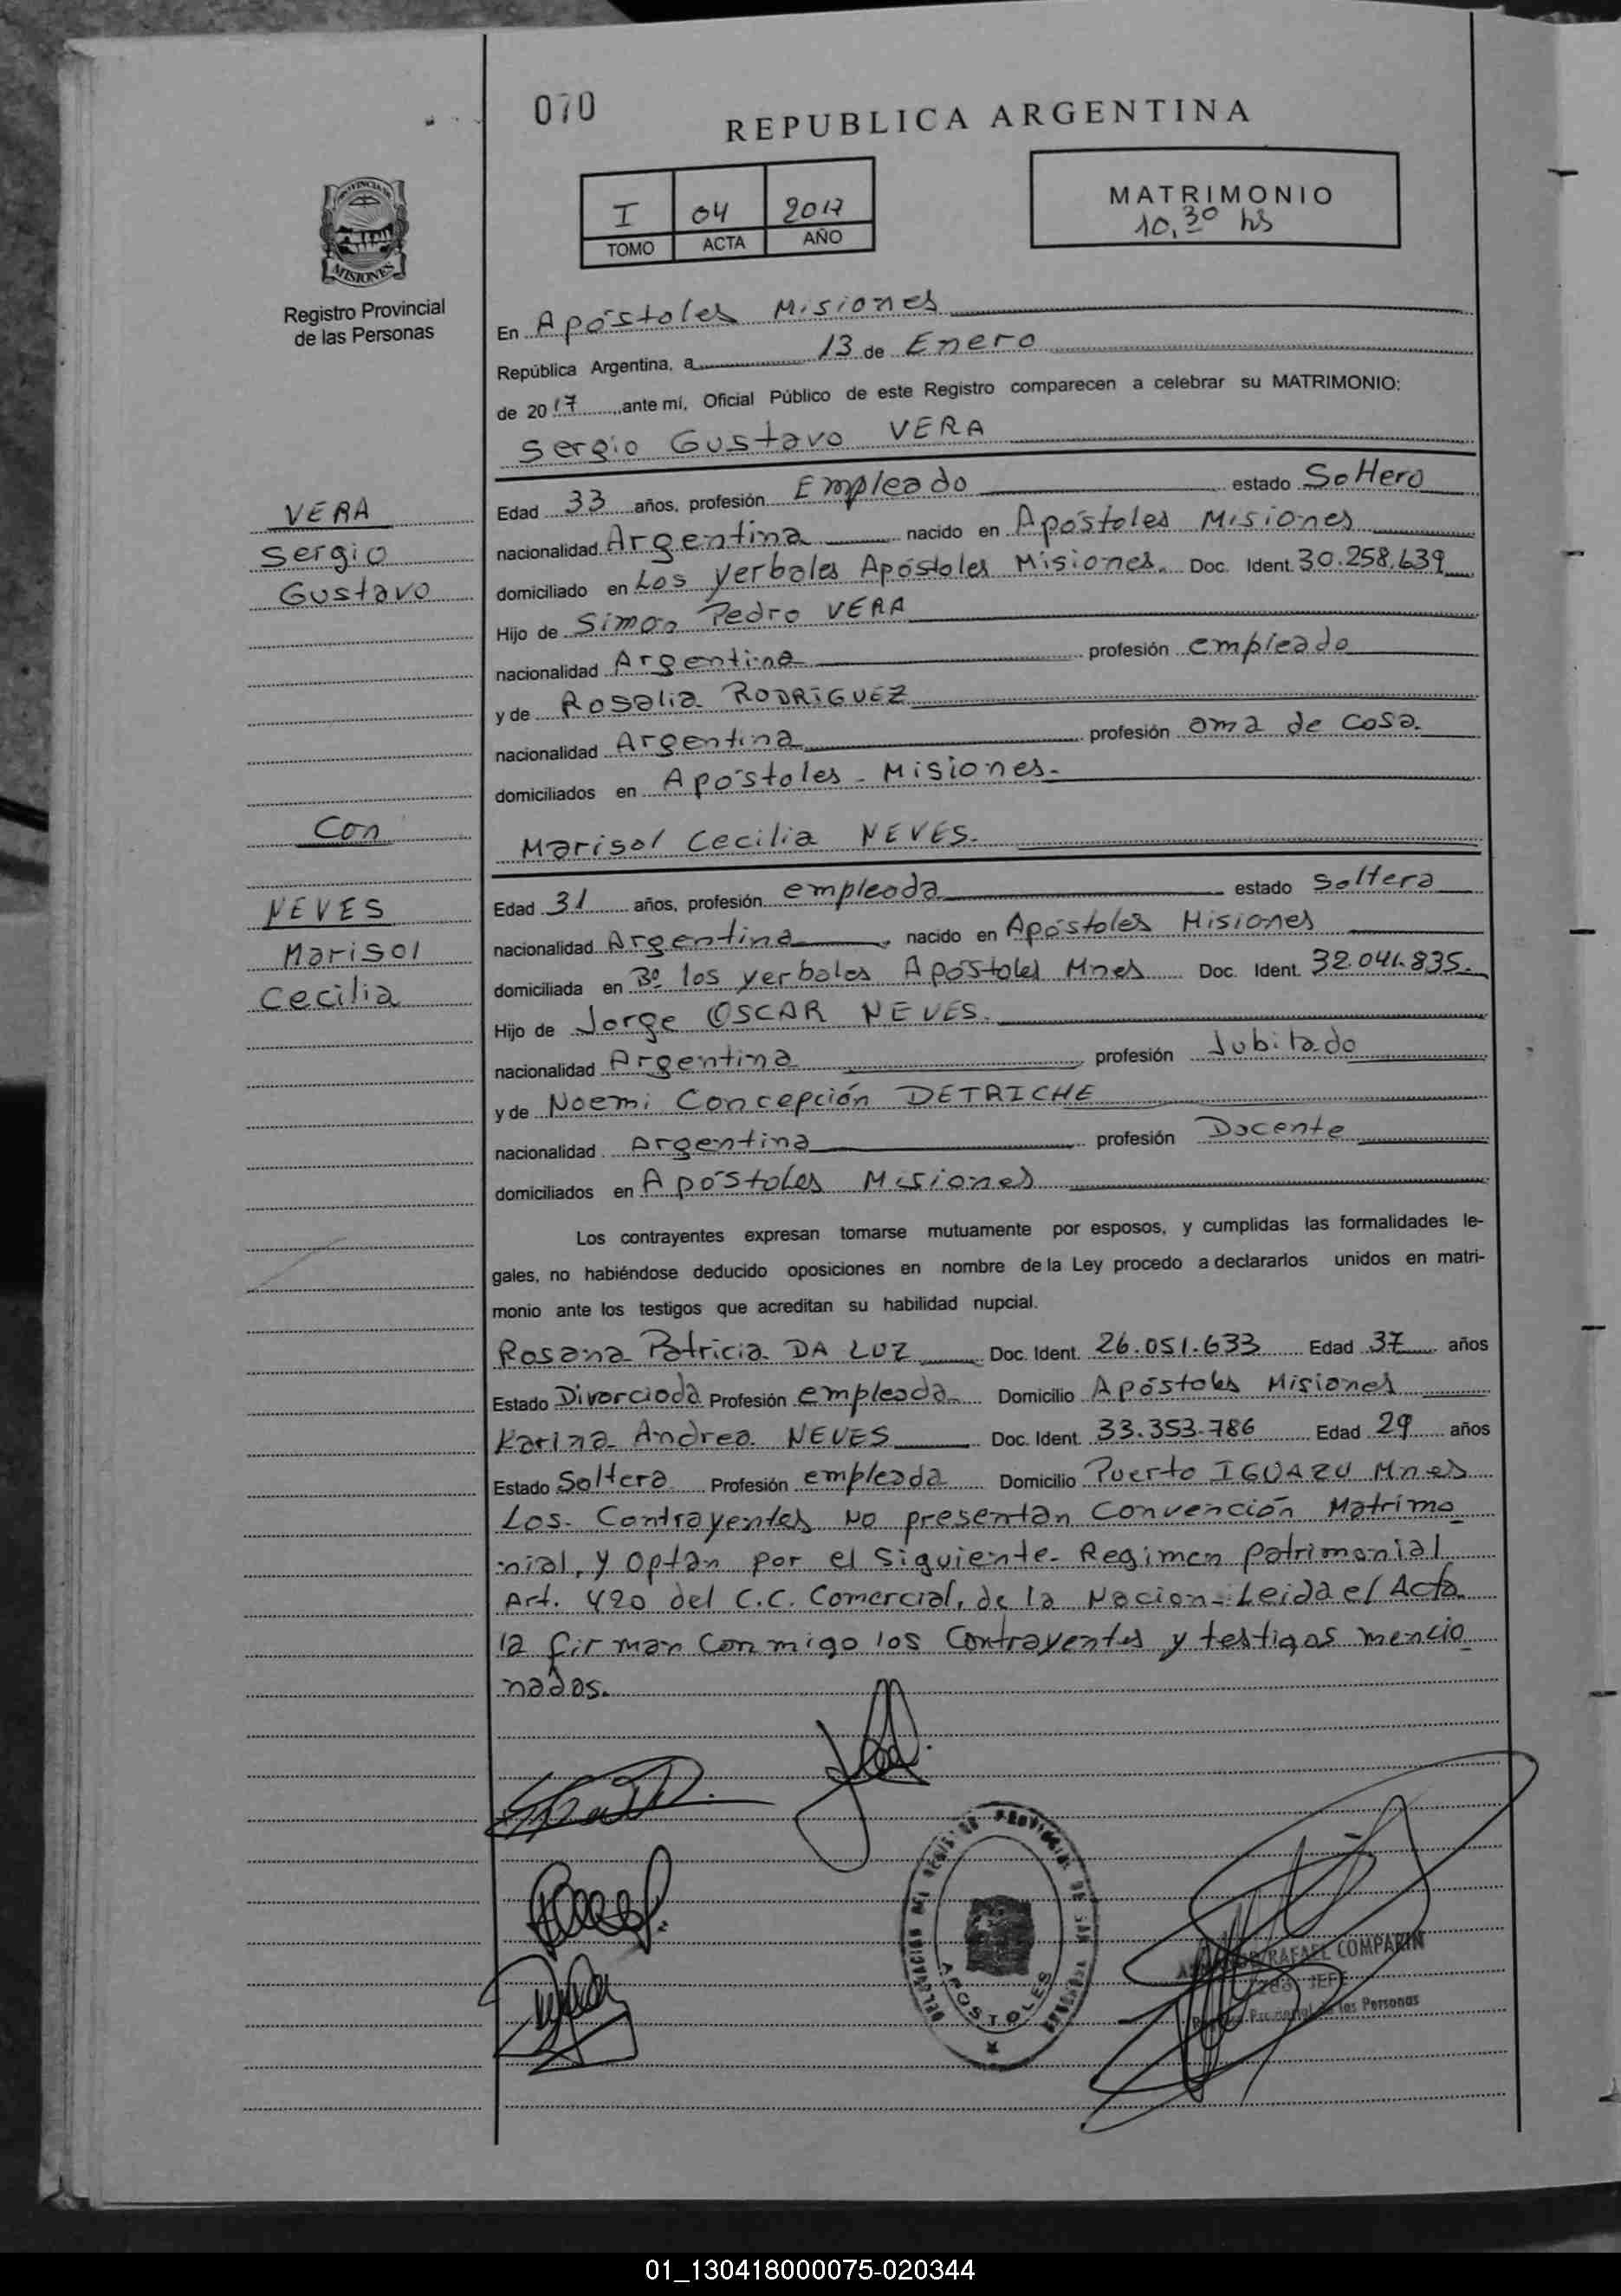 070
REPUBLICA ARGENTINA
I 04 2017
TOMO ACTA AÑO
MATRIMONIO
10,30 hs
PROVINCIA DE
MISIONES
Registro Provincial
de las Personas
En Apóstoles Misiones
República Argentina, a 13 de Enero
de 2017, ante mí, Oficial Público de este Registro comparecen a celebrar su MATRIMONIO:
Sergio Gustavo VERA
VERA
Sergio
Gustavo
Edad 33 años, profesión Empleado estado Soltero
nacionalidad Argentina nacido en Apóstoles Misiones
domiciliado en Los yerbales Apóstoles Misiones. Doc. Ident. 30.258.639
Hijo de Simon Pedro VERA
nacionalidad Argentina profesión empleado
y de Rosalia RODRIGUEZ
nacionalidad Argentina profesión ama de casa.
domiciliados en Apóstoles - Misiones-
Con
Marisol Cecilia NEVES.
NEVES
Marisol
Cecilia
Edad 31 años, profesión empleada estado Soltera
nacionalidad Argentina, nacido en Apóstoles Misiones
domiciliada en Bº los yerbales Apóstoles Mnes Doc. Ident. 32.041.835.
Hijo de Jorge OSCAR NEVES.
nacionalidad Argentina profesión Jubilado
y de Noemi Concepción DETRICHE
nacionalidad Argentina profesión Docente
domiciliados en Apóstoles Misiones
Los contrayentes expresan tomarse mutuamente por esposos, y cumplidas las formalidades le-
gales, no habiéndose deducido oposiciones en nombre de la Ley procedo a declararlos unidos en matri-
monio ante los testigos que acreditan su habilidad nupcial.
Rosana Patricia DA LUZ Doc. Ident. 26.051.633 Edad 37 años
Estado Divorciada Profesión empleada Domicilio Apóstoles Misiones
Karina Andrea NEVES Doc. Ident. 33.353.786 Edad 29 años
Estado Soltera Profesión empleada Domicilio Puerto IGUAZU Mnes
Los Contrayentes No presentan Convención Matrimo
nial, y optan por el siguiente Regimen patrimonial
Art. 420 del C.C. Comercial, de la Nacion- Leida el Acta
la firman conmigo los Contrayentes y testigos mencio
nados.
DELEGACION DEL REGISTRO PROVINCIAL DE LAS PERSONAS
APOSTOLES
RAFAEL COMPARIN
JEFE
Provincial de las Personas
01_130418000075-020344